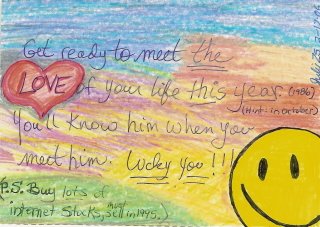 Get ready to meet the
LOVE of your life this year. (1986)
(Hint: in october)
You'll know him when you
meet him. Lucky you!!!
(P.S. Buy lots of
internet Stocks, must sell in 1995.)